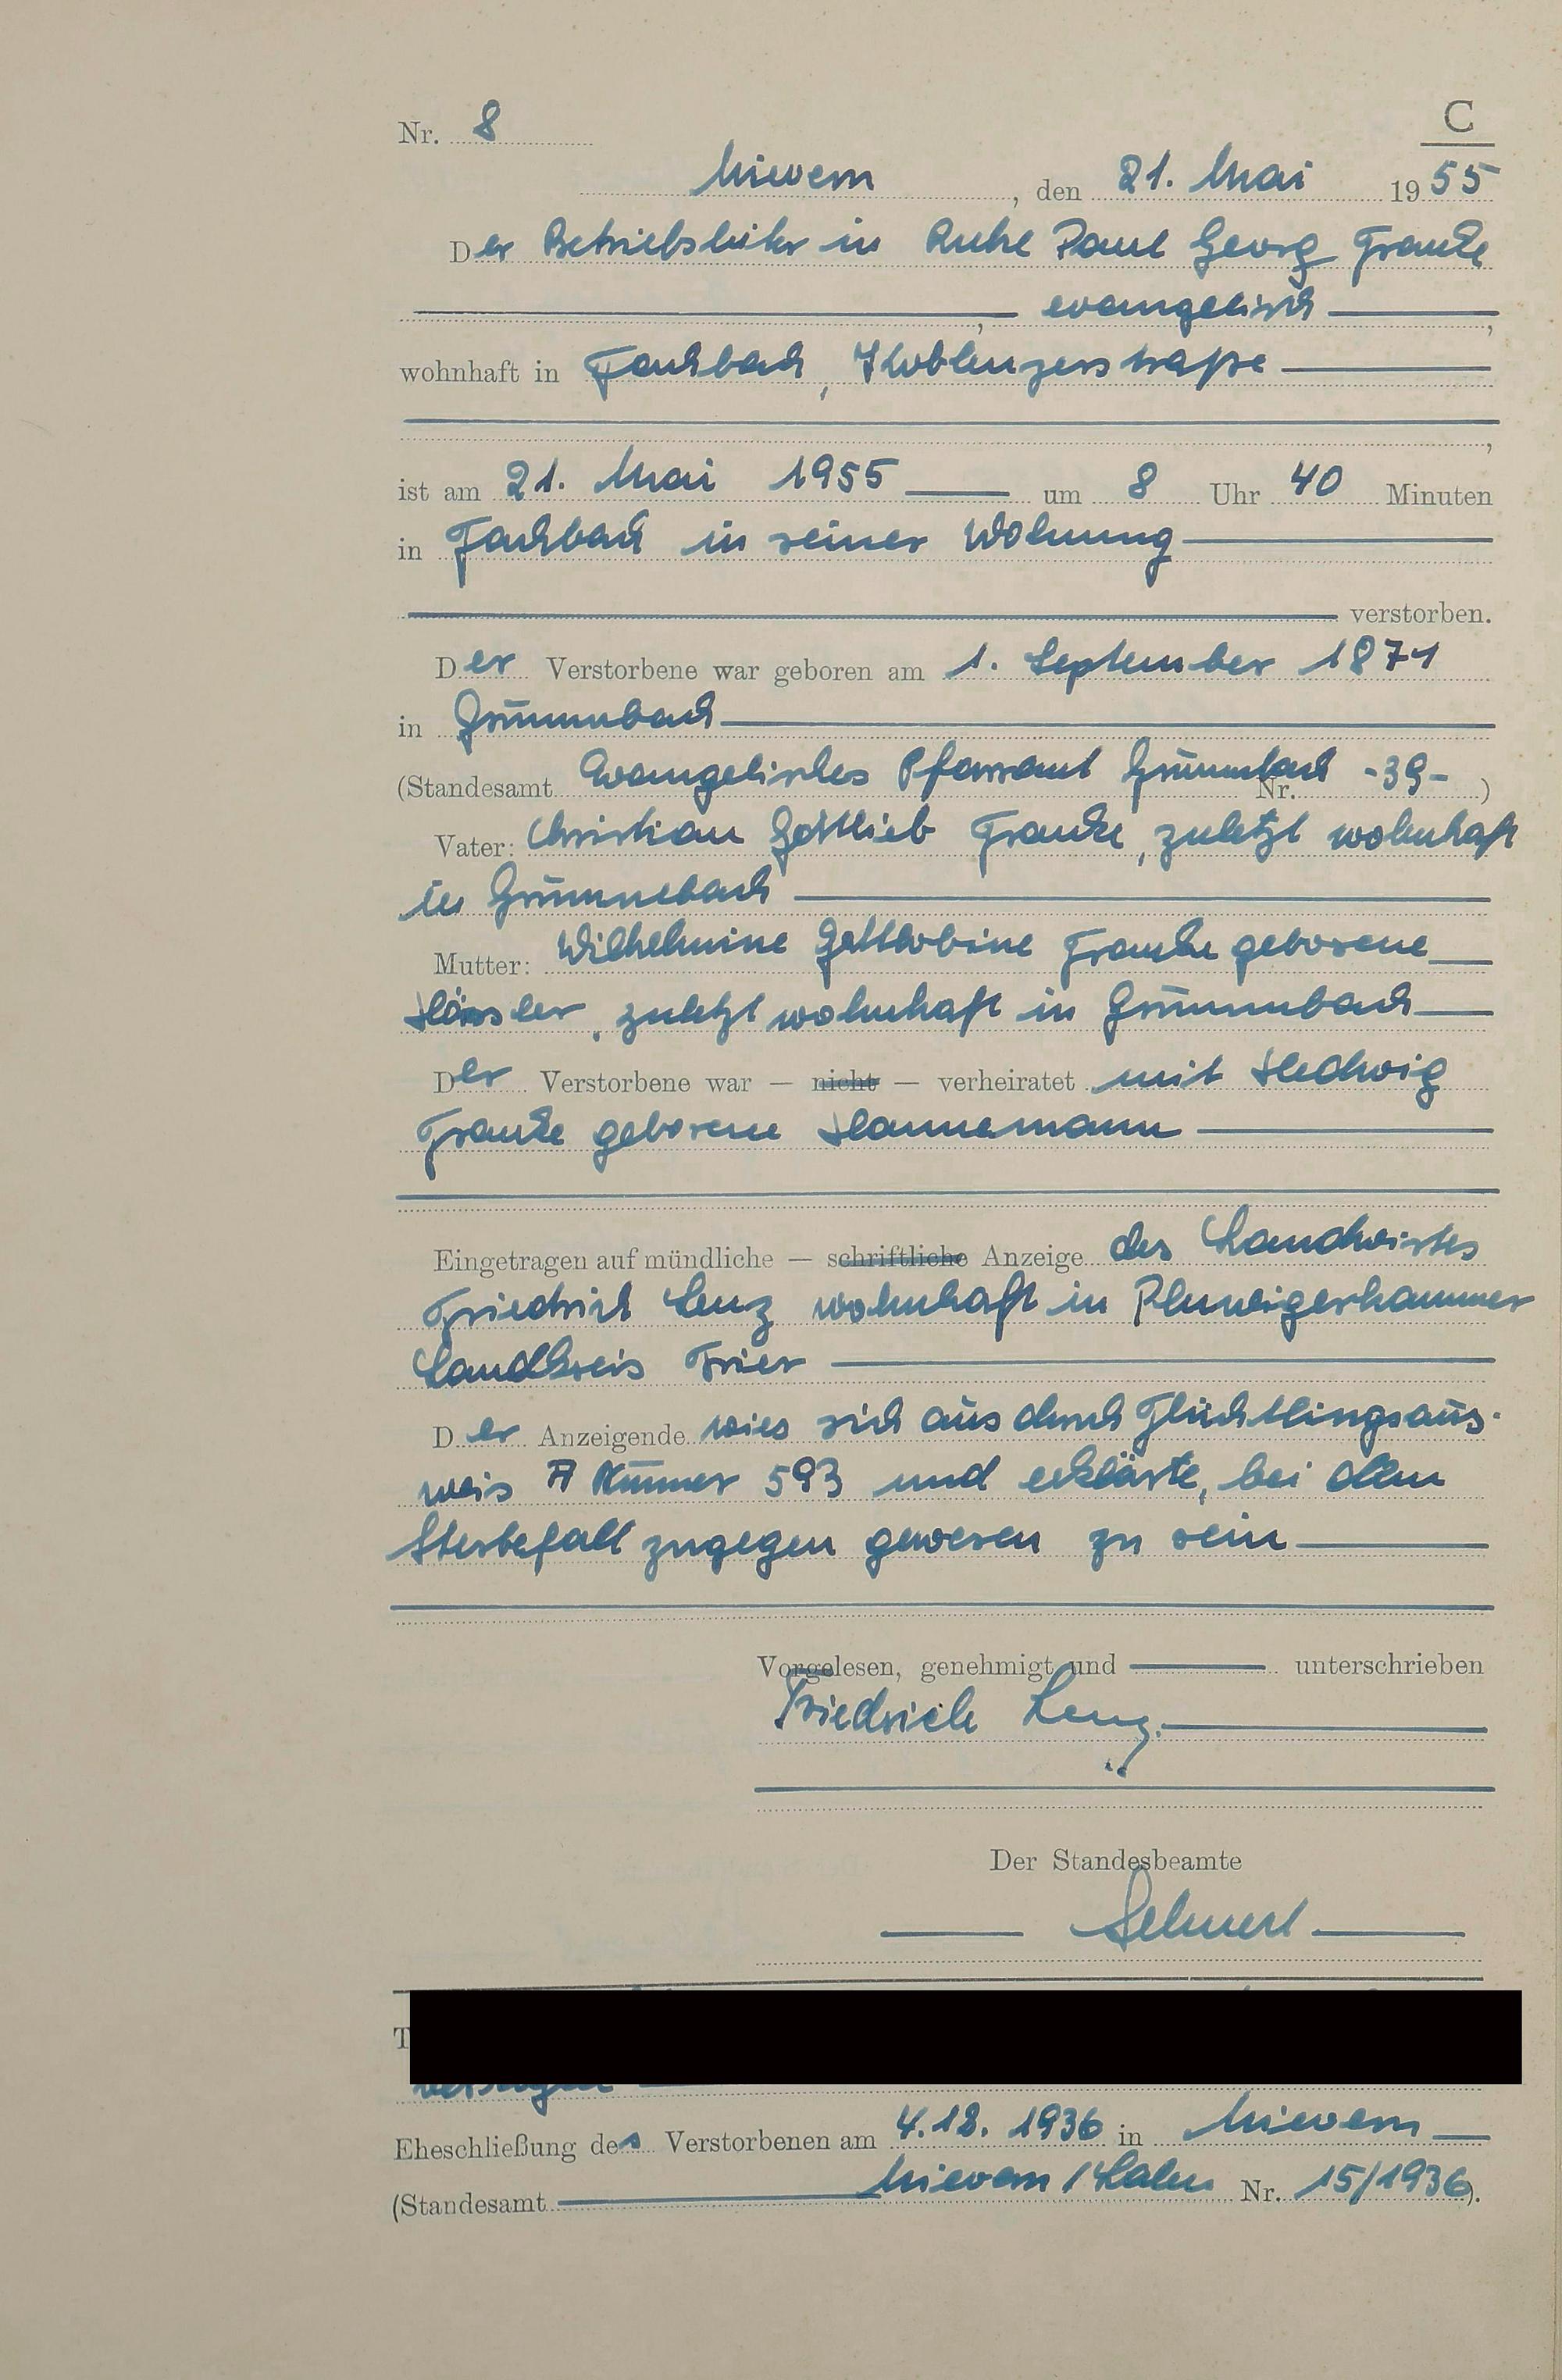 C
Nr. 8
Nievern, den 21. Mai 1955
Der Betriebsleiter in Ruhe Paul Georg Franke
, evangelisch ,
wohnhaft in Fachbach, Koblenzerstraße
,
ist am 21. Mai 1955 um 8 Uhr 40 Minuten
in Fachbach in seiner Wohnung
verstorben.
Der Verstorbene war geboren am 1. September 1871
in Grünnbach
(Standesamt Evangelisches Pfarramt Nr. -39-)
Vater: Christian Gottlieb Franke, zuletzt wohnhaft
in
Mutter: Wilhelmine Gottlobine Franke geborene
zuletzt wohnhaft in Grünnbach
Der Verstorbene war — nicht — verheiratet mit Hedwig
Franke geborene Hannemann
Eingetragen auf mündliche — schriftliche Anzeige des Landwirtes
Friedrich Lenz wohnhaft in Pluwigerhammer
Landkreis Trier
Der Anzeigende wies sich aus durch Flüchtlingsaus-
weis A Nummer 593 und erklärte, bei dem
Sterbefall zugegen gewesen zu sein
Vorgelesen, genehmigt und unterschrieben
Friedrich Lenz.
Der Standesbeamte
Eheschließung des Verstorbenen am 4.12. 1936 in Nievern
(Standesamt Nievern / Lahn Nr. 15/1936).